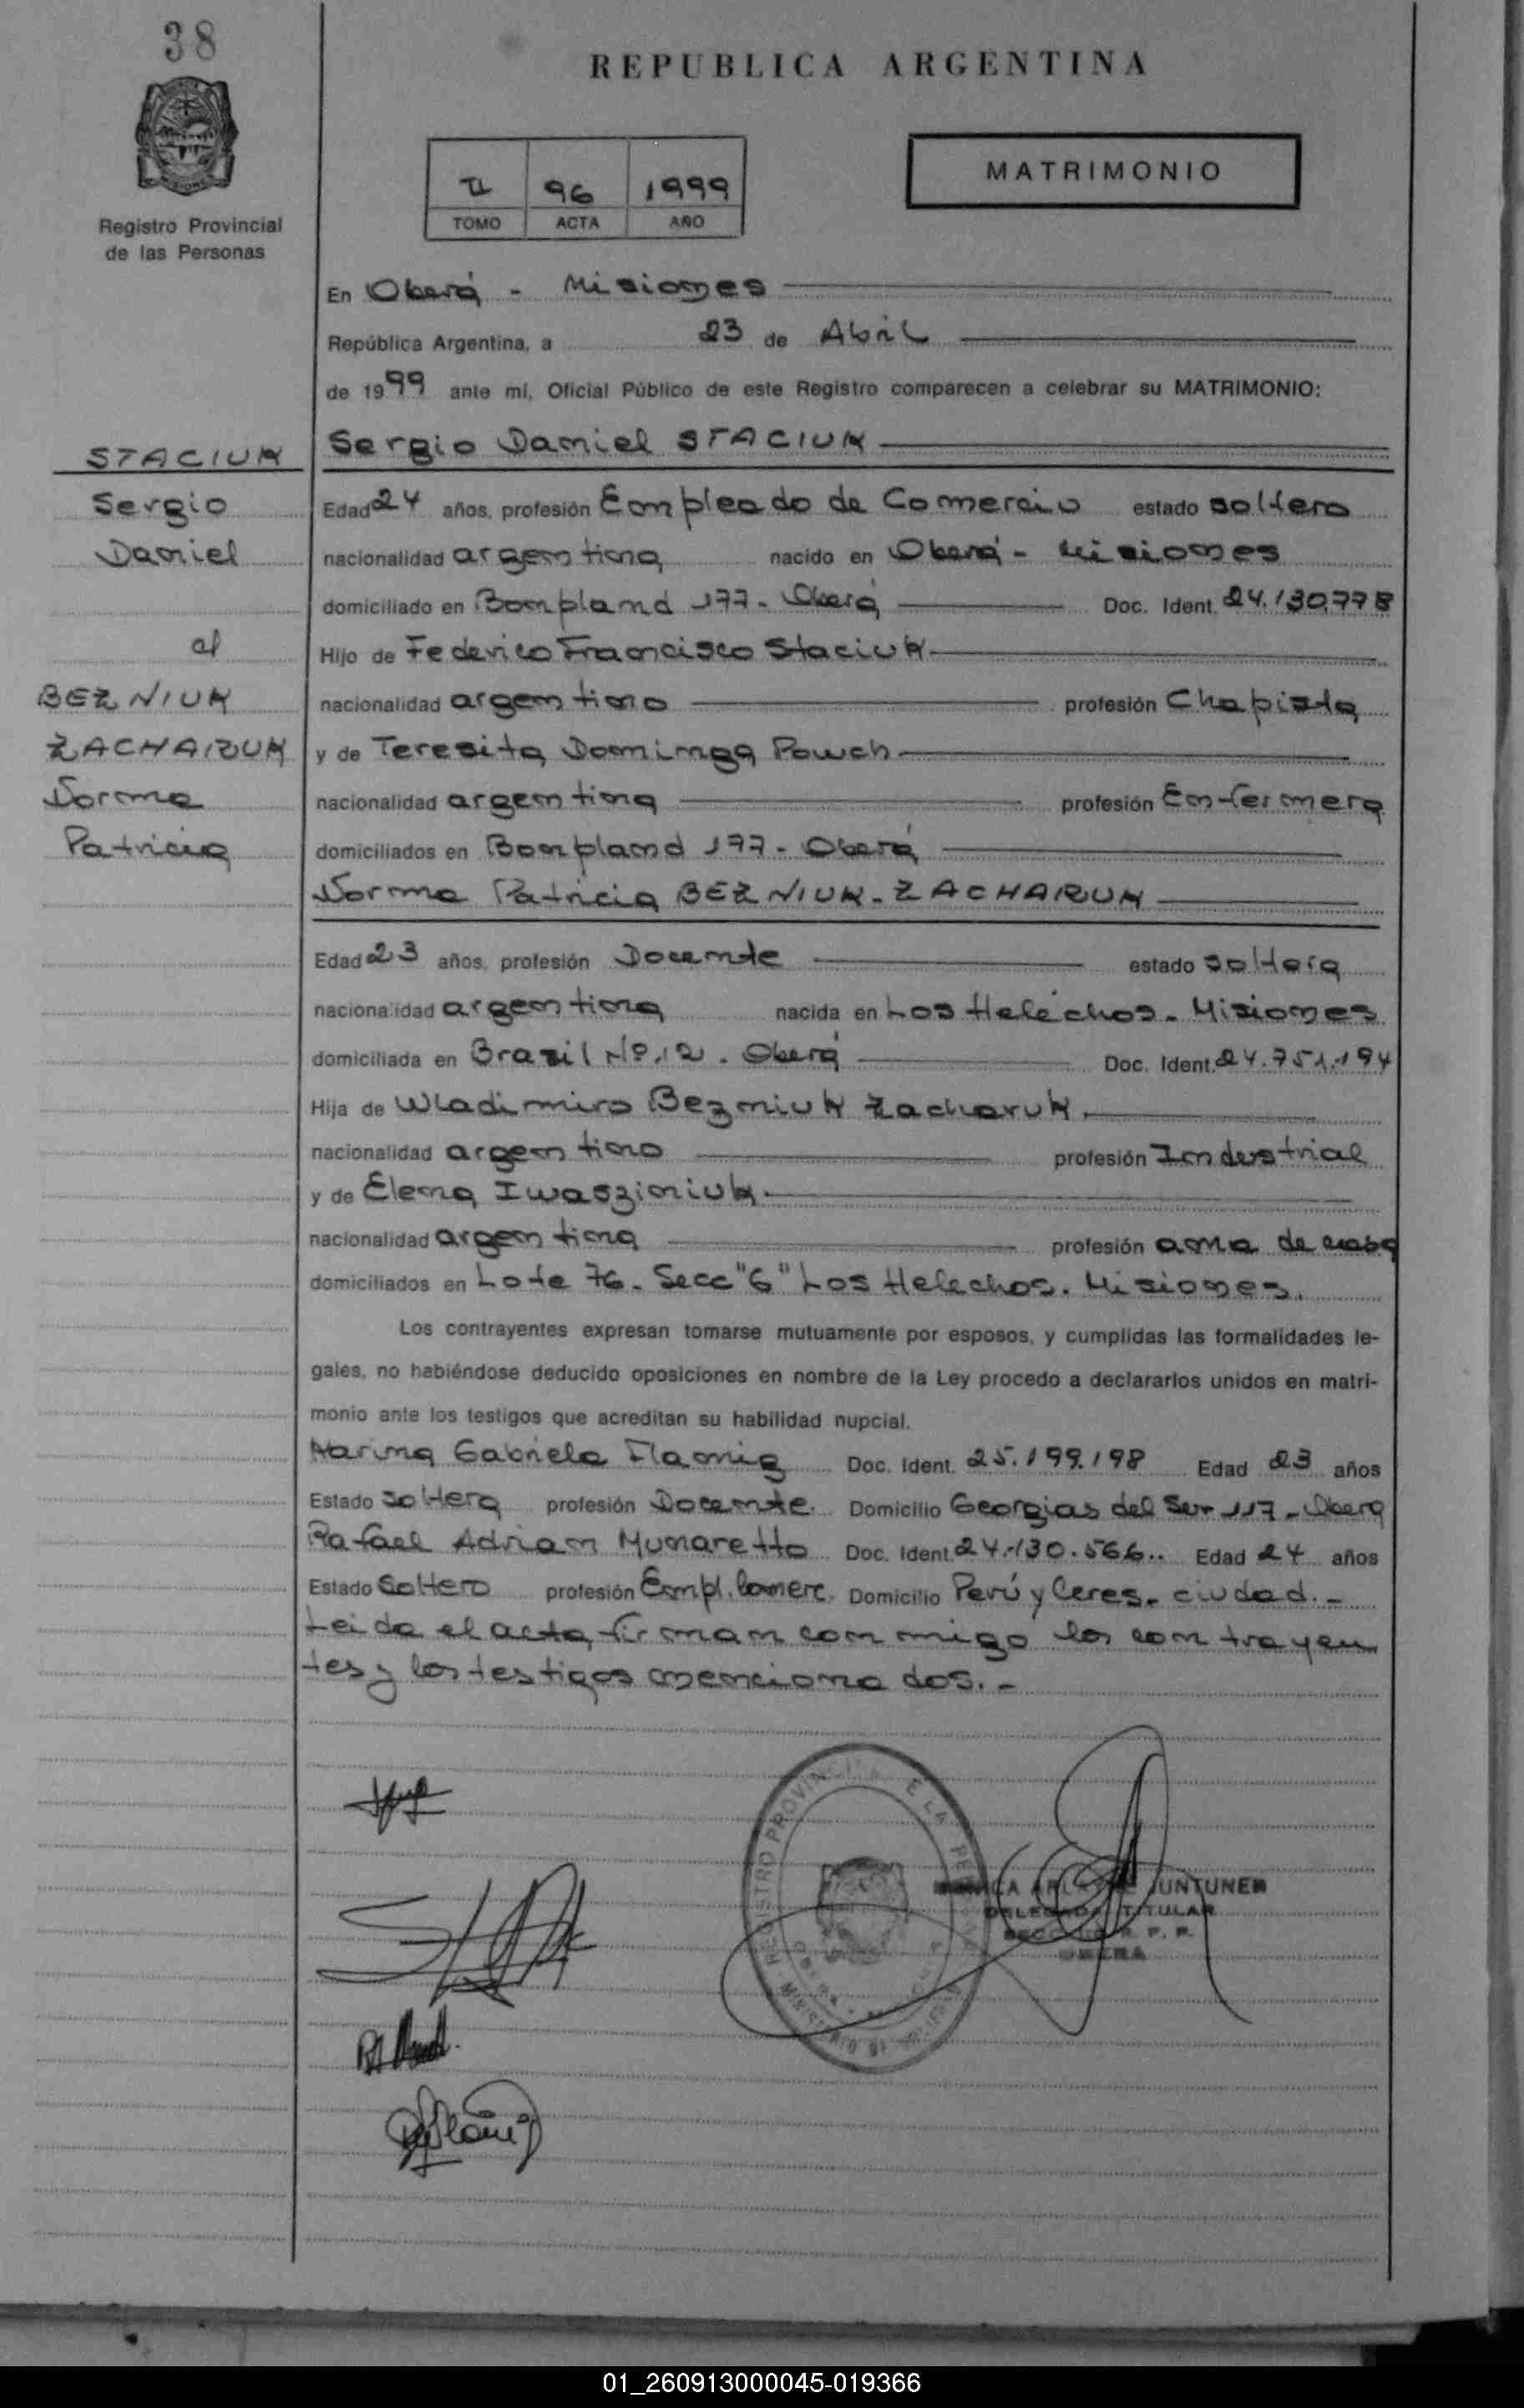 38
REPUBLICA ARGENTINA
MATRIMONIO
II 96 1999
TOMO ACTA AÑO
Registro Provincial
de las Personas
En Oberá - Misiones
República Argentina, a 23 de Abril
de 1999 ante mí, Oficial Público de este Registro comparecen a celebrar su MATRIMONIO:
STACIUK
Sergio
Daniel
c/
BEZNIUK
ZACHARUK
Norma
Patricia
Sergio Daniel STACIUK
Edad 24 años, profesión Empleado de Comercio estado soltero
nacionalidad argentina nacido en Oberá - Misiones
domiciliado en Bompland 177 - Oberá Doc. Ident. 24.130.778
Hijo de Federico Francisco Staciuk
nacionalidad argentino profesión Chapista
y de Teresita Dominga Powch
nacionalidad argentina profesión Enfermera
domiciliados en Bompland 177 - Oberá
Norma Patricia BEZNIUK - ZACHARUK
Edad 23 años, profesión Docente estado soltera
nacionalidad argentina nacida en Los Helechos - Misiones
domiciliada en Brasil Nº 12 - Oberá Doc. Ident. 24.751.194
Hija de Wladimiro Bezniuk Zacharuk
nacionalidad argentino profesión Industrial
y de Elena Iwasziniuk
nacionalidad argentina profesión ama de casa
domiciliados en Lote 76 - Secc "6" Los Helechos. Misiones.
Los contrayentes expresan tomarse mutuamente por esposos, y cumplidas las formalidades le-
gales, no habiéndose deducido oposiciones en nombre de la Ley procedo a declararlos unidos en matri-
monio ante los testigos que acreditan su habilidad nupcial.
Marina Gabriela Flamig Doc. Ident. 25.199.198 Edad 23 años
Estado soltera profesión Docente. Domicilio Georgias del Sur 117 - Oberá
Rafael Adrian Munaretto Doc. Ident. 24.130.566.. Edad 24 años
Estado Soltero profesión Empl. Comerc. Domicilio Perú y Ceres - ciudad. -
Leida el acta, firman conmigo los contrayen
tes y los testigos mencionados. -
REGISTRO PROVINCIAL DE LAS PERSONAS
JUNTUNEN
DELEGADA TITULAR
R. P. P.
OBERA
01_260913000045-019366